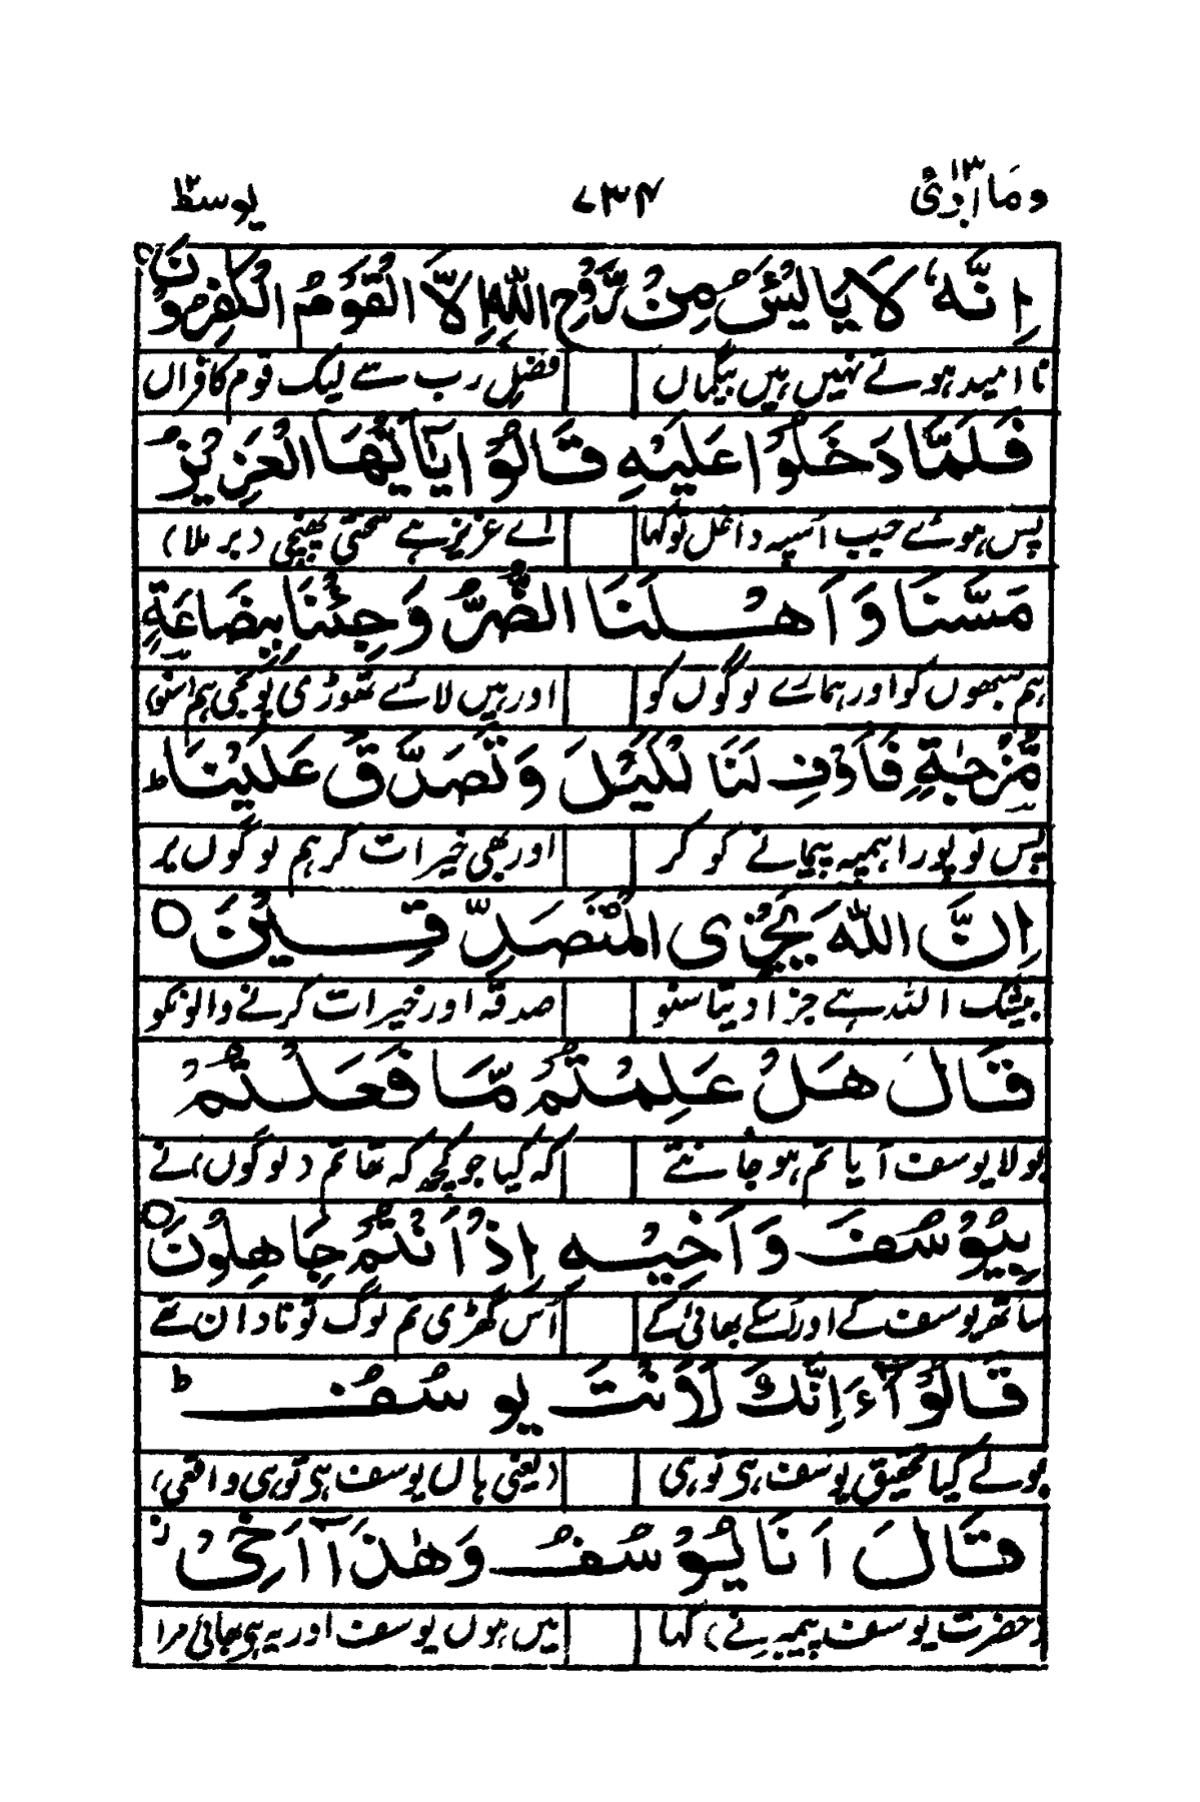 وما ابرئ ١٣ ٧٣٤ يوسف ١٢
اِنَّهٗ لَا يَايْئَسُ مِنْ رَّوْحِ اللّٰهِ اِلَّا الْقَوْمُ الْكٰفِرُوْنَ
نا امید ہوتے نہیں ہیں بیگماں فضلِ رب سے لیک قوم کافراں
فَلَمَّا دَخَلُوْا عَلَيْهِ قَالُوْا يٰٓاَيُّهَا الْعَزِيْزُ
پس ہوئے جب اُسپہ داخل تو کہا اے عزیز ہے سختی پہنچی (برملا)
مَسَّنَا وَاَهْلَنَا الضُّرُّ وَجِئْنَا بِبِضَاعَةٍ
ہم سبھوں کو اور ہمارے لوگوں کو اور ہیں لائے تھوڑی پونجی ہم
مُّزْجٰىةٍ فَاَوْفِ لَنَا لْكَيْلَ وَتَصَدَّقْ عَلَيْنَا ط
پس تو پورا ہمپہ پیمانے کو کر اور بھی خیرات کر ہم لوگوں پر
اِنَّ اللّٰهَ يَجْزِى الْمُتَصَدِّقِيْنَ ○
بیشک اللہ ہے جزا دیتا سنو صدقہ اور خیرات کرنے والونکو
قَالَ هَلْ عَلِمْتُمْ مَّا فَعَلْتُمْ
بولا یوسف آیا تم ہو جانتے کہ کیا جو کچھ کہ تھا تم (لوگوں) نے
بِيُوْسُفَ وَاَخِيْهِ اِذْ اَنْتُمْ جَاهِلُوْنَ ○
ساتھ یوسف کے اور اُسکے بھائی کے اُس گھڑی تم لوگ تو نادان تھے
قَالُوْٓا ءَاِنَّكَ لَاَنْتَ يُوْسُفُ ط
بولے کیا تحقیق یوسف ہی تو ہی (یعنی ہاں یوسف ہی تو ہی واقعی)
قَالَ اَنَا يُوْسُفُ وَهٰذَآ اَخِىْ ز
(حضرت یوسف پیمبر نے) کہا میں ہوں یوسف اور یہ ہی بھائی مرا